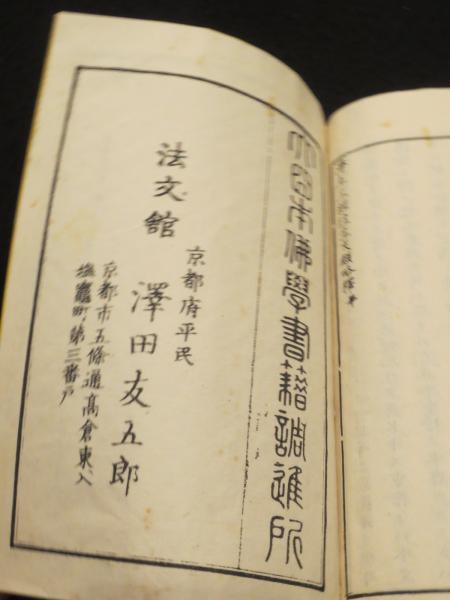 大日本佛學書籍調進所
京都府平民
澤田友五郎
京都市五條通高倉東入
塩竈町第三番戸
法文館